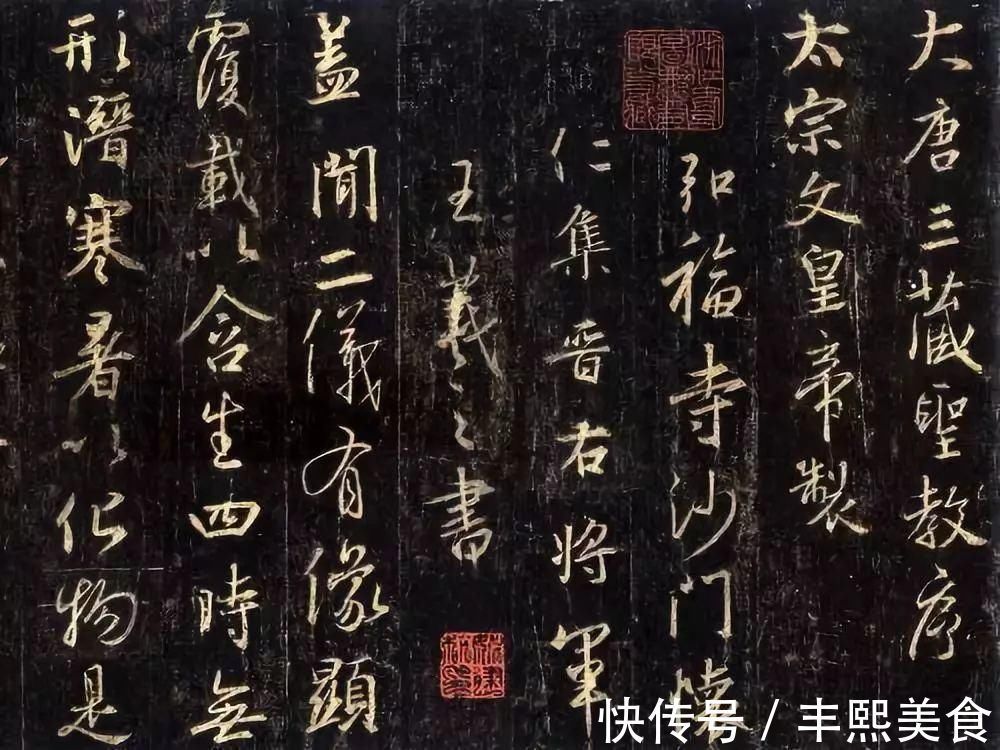 大唐三藏聖教序
太宗文皇帝製
弘福寺沙門懷
仁集晉右將軍
王羲之書
蓋聞二儀有像顯
覆載以含生四時無
形潛寒暑以化物是
快传号 / 丰熙美食